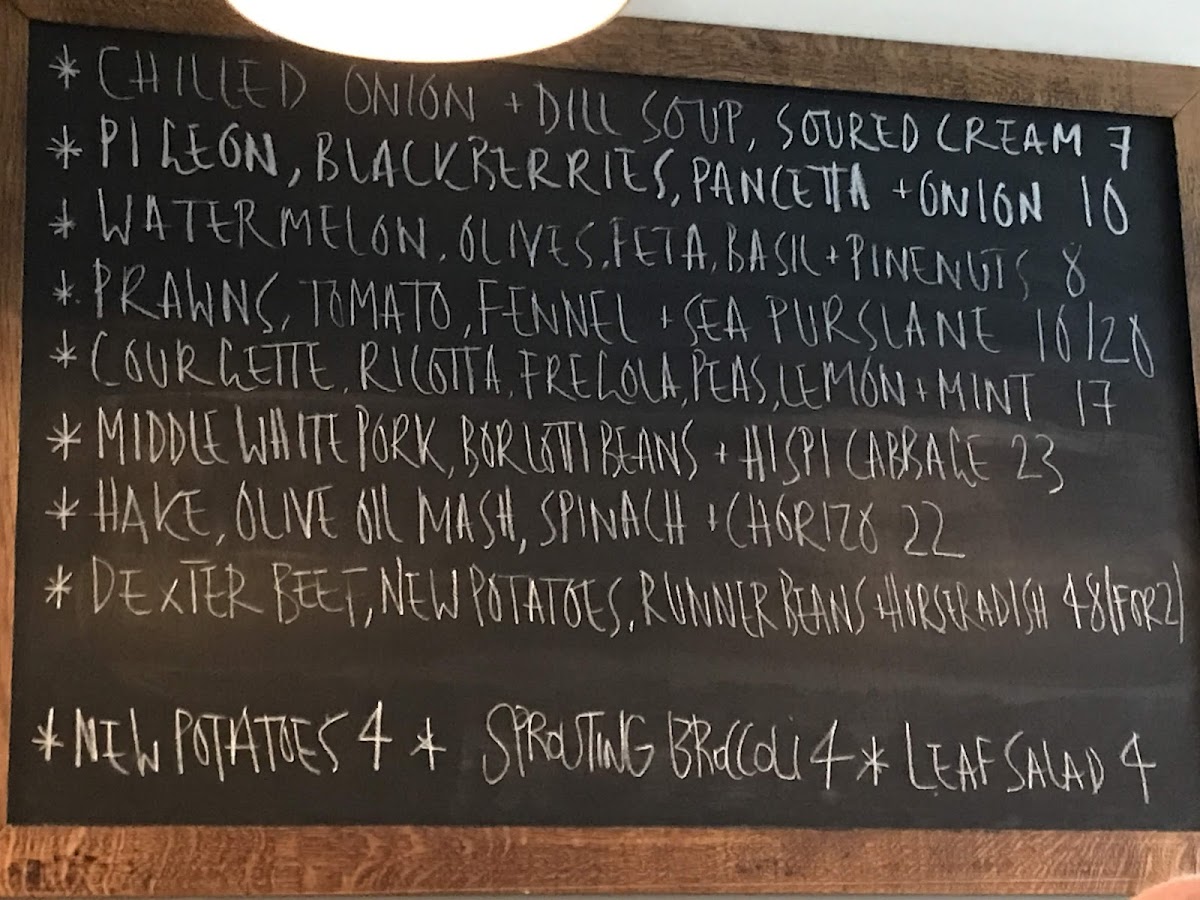 * CHILLED ONION + DILL SOUP, SOURED CREAM 7
* PIGEON, BLACKBERRIES, PANCETTA + ONION 10
* WATERMELON, OLIVES, FETA, BASIL + PINENUTS 8
* PRAWNS, TOMATO, FENNEL + SEA PURSLANE 10/20
* COURGETTE, RICOTTA, FREGOLA, PEAS, LEMON + MINT 17
* MIDDLE WHITE PORK, BORLOTTI BEANS + HISPI CABBAGE 23
* HAKE, OLIVE OIL MASH, SPINACH + CHORIZO 22
* DEXTER BEEF, NEW POTATOES, RUNNER BEANS + HORSERADISH 48 (FOR 2)
* NEW POTATOES 4 * SPROUTING BROCCOLI 4 * LEAF SALAD 4